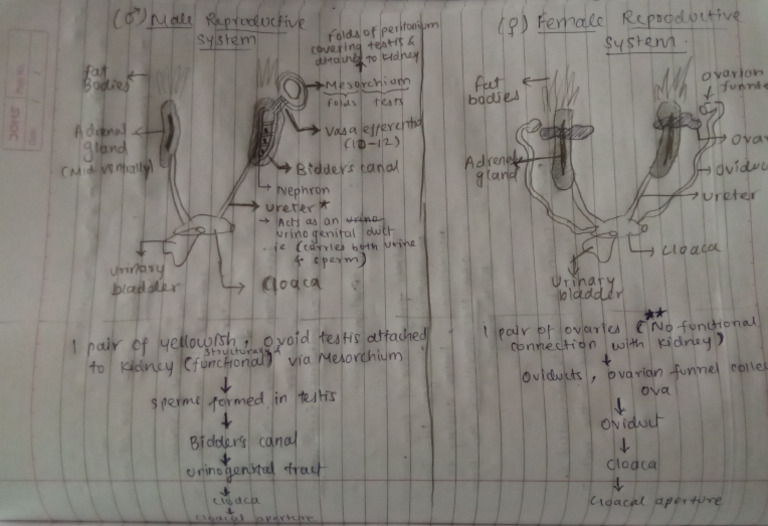 (♂) Male Reproductive
System
Folds of peritonium
covering testis &
attaches to kidney
fat
Bodies
Mesorchium
folds testis
Adrenal
gland
(Mid ventrally)
Vasa efferentia
(10-12)
Bidder's canal
Nephron
ureter *
→ Acts as an urino
urinogenital duct
ie (carries both urine
& sperm)
urinary
bladder
Cloaca
1 pair of yellowish, ovoid testis attached
structural &
to kidney (functional) via Mesorchium
↓
sperms formed in testis
↓
Bidder's canal
↓
urinogenital tract
↓
cloaca
↓
cloacal aperture
(♀) Female Reproductive
System.
fat
bodies
ovarian
funne
Adrenal
gland
ova
oviduc
ureter
cloaca
Urinary
bladder
1 pair of ovaries (**No functional
connection with kidney)
↓
Oviducts, ovarian funnel colle
ova
↓
Oviduct
↓
cloaca
↓
cloacal aperture